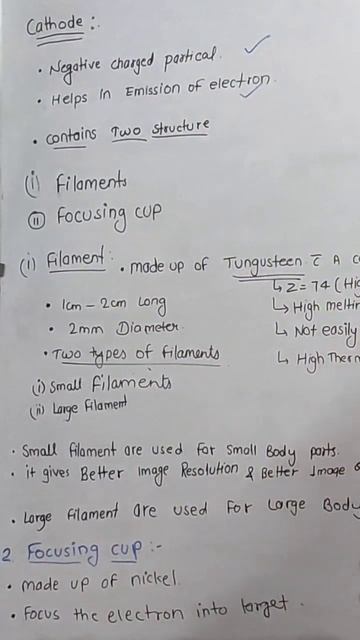 Cathode :-
• Negative charged partical.
• Helps in Emission of electron.
• contains Two structure
(i) Filaments
(ii) Focusing cup
(i) Filament: • made up of Tungusteen c̄ A
↳ Z = 74 (
• 1cm – 2cm long ↳ High
• 2mm Diameter. ↳ Not easily
• Two types of filaments ↳ High
(i) Small Filaments
(ii) Large Filament
• Small filament are used for small Body parts.
• it gives Better Image Resolution & Better Image
• Large filament are used for Large Body
2. Focusing cup :-
• made up of nickel.
• Focus the electron into target.